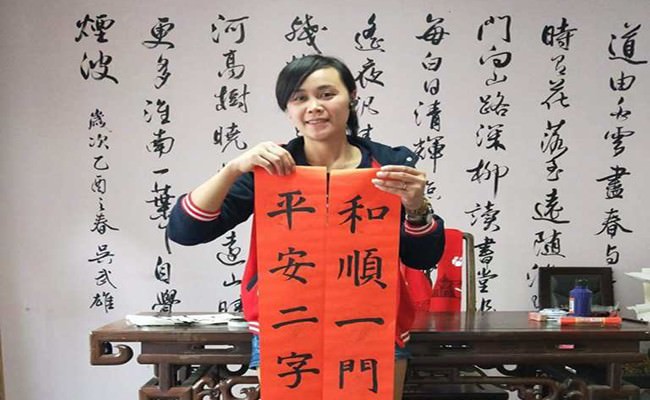 道由白雲盡春與
時有花落至遠隨
門向山路深柳讀書堂
每白日清輝
遙夜
殘
河高樹曉
遠山晴
更多淮南一葉下自覺
煙波
歲次乙酉之春 吳武雄
和順一門
平安二字